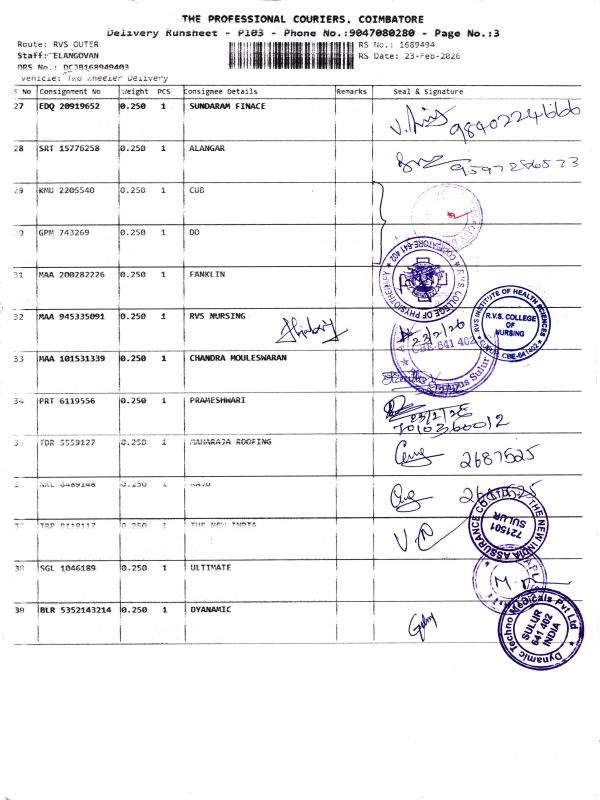 THE PROFESSIONAL COURIERS, COIMBATORE
Delivery Runsheet - P103 - Phone No.:9047080280 - Page No.:3
Route: RVS OUTER
RS No.: 1689494
Staff: ELANGOVAN
RS Date: 23-Feb-2026
DRS No.: DCJB168949403
Vehicle: Two Wheeler Delivery
S No Consignment No Weight PCS Consignee Details Remarks Seal & Signature
27 EDQ 20919652 0.250 1 SUNDARAM FINACE
28 SRT 15776258 0.250 1 ALANGAR
29 KMU 2205540 0.250 1 CUB
30 GPM 743269 0.250 1 DO
31 MAA 200282226 0.250 1 FANKLIN
R.V.S. COLLEGE OF PHYSIOTHERAPY ★ COIMBATORE-641 402 ★
32 MAA 945335091 0.250 1 RVS NURSING
RVS INSTITUTE OF HEALTH SCIENCES
R.V.S. COLLEGE
OF
NURSING
SULUR, CBE-641402
CBE-641 402
33 MAA 101531339 0.250 1 CHANDRA MOULESWARAN
34 PRT 6119556 0.250 1 PRAMESHWARI
23/2/26
7010360012
35 TDR 5559127 0.250 1 MAHARAJA ROOFING
2687525
0.250 1 RAJU
0.250 1 THE NEW INDIA
THE NEW INDIA ASSURANCE CO LTD
721501
SULUR
38 SGL 1046189 0.250 1 ULTIMATE
39 BLR 5352143214 0.250 1 DYANAMIC
Dynamic Techno Medicals Pvt Ltd
SULUR
641 402
INDIA